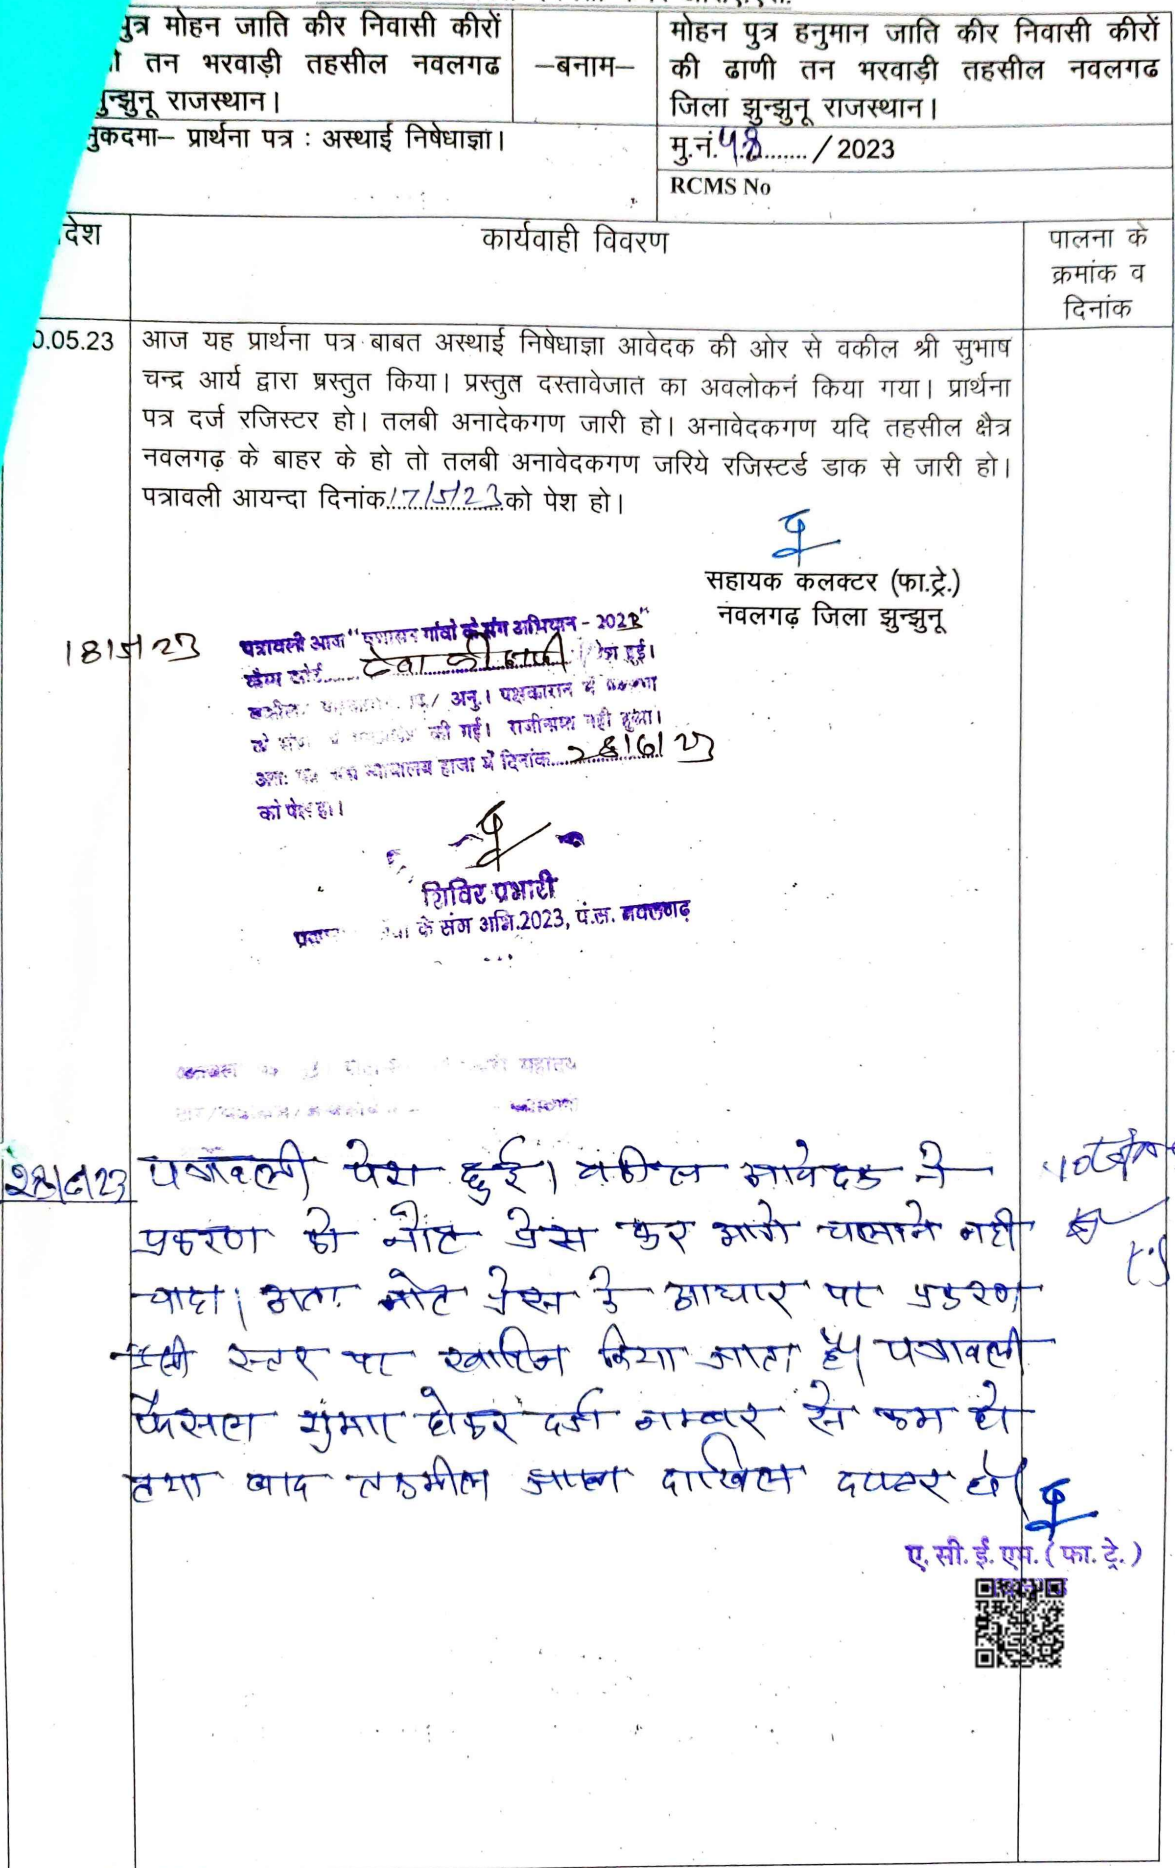 पुत्र मोहन जाति कीर निवासी कीरों
तन भरवाड़ी तहसील नवलगढ
झुन्झुनू राजस्थान।
–बनाम–
मोहन पुत्र हनुमान जाति कीर निवासी कीरों
की ढाणी तन भरवाड़ी तहसील नवलगढ
जिला झुन्झुनू राजस्थान।
मुकदमा– प्रार्थना पत्र : अस्थाई निषेधाज्ञा।
मु.नं. 48 ....... / 2023
RCMS No
देश
कार्यवाही विवरण
पालना के
क्रमांक व
दिनांक
0.05.23
आज यह प्रार्थना पत्र बाबत अस्थाई निषेधाज्ञा आवेदक की ओर से वकील श्री सुभाष
चन्द्र आर्य द्वारा प्रस्तुत किया। प्रस्तुत दस्तावेजात का अवलोकन किया गया। प्रार्थना
पत्र दर्ज रजिस्टर हो। तलबी अनादेकगण जारी हो। अनावेदकगण यदि तहसील क्षैत्र
नवलगढ़ के बाहर के हो तो तलबी अनावेदकगण जरिये रजिस्टर्ड डाक से जारी हो।
पत्रावली आयन्दा दिनांक 17/5/23 को पेश हो।
सहायक कलक्टर (फा.ट्रे.)
नवलगढ़ जिला झुन्झुनू
18/5/23
पत्रावली आज "प्रशासन गांवो के संग अभियान - 2023"
कैम्प कोर्ट...... देवा की ढाणी पेश हुई।
अनु.। पक्षकारान में
की गई। राजीनामा नही हुआ।
अतः न्यायालय हाजा में दिनांक 28/6/23
को पेश हो।
शिविर प्रभारी
के संग अभि.2023, पं.स. नवलगढ़
28/6/23
पत्रावली पेश हुई। वकील आवेदक ने
प्रकरण को नोट प्रेस कर आगे चलाने नही
चाहा। अतः नोट प्रेस के आधार पर प्रकरण
इसी स्तर पर खारिज किया जाता है। पत्रावली
फैसल शुमार होकर दर्ज नम्बर से कम हो
तथा बाद तकमील जाब्ता दाखिल दफ्तर हो।
ए.सी.ई.एम.(फा.ट्रे.)